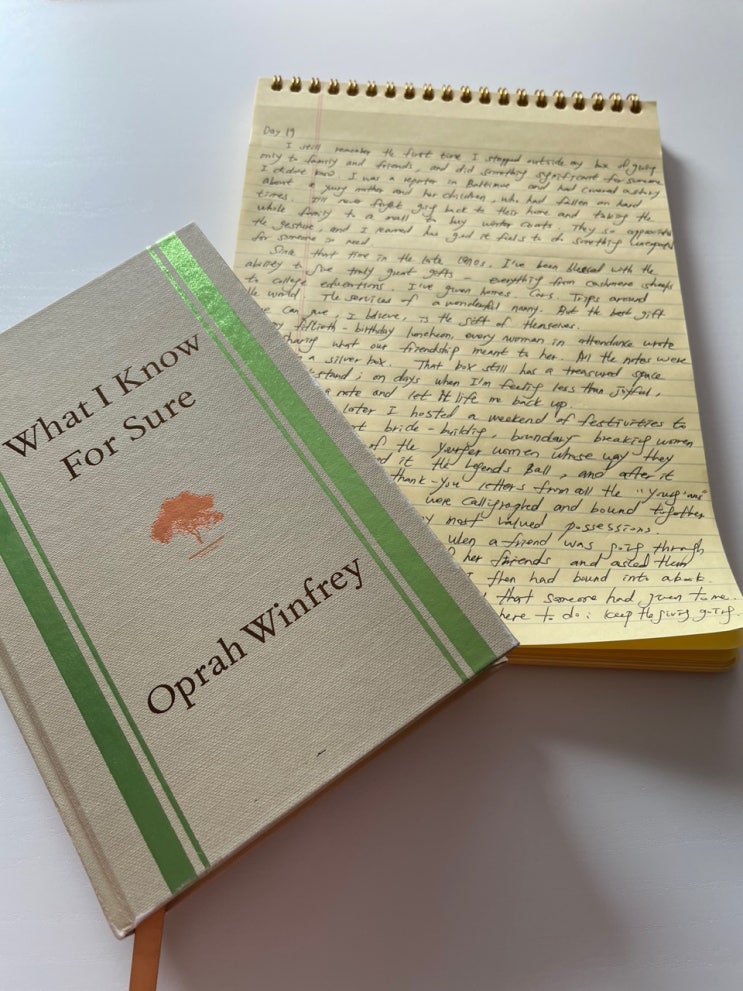 What I Know
For Sure
Oprah Winfrey
Day 19
I still remember the first time I stepped outside my box of giving
only to family and friends, and did something significant for someone
I didn't know. I was a reporter in Baltimore and had covered a story
about a young mother and her children, who had fallen on hard
times. I'll never forget going back to their home and taking the
whole family to a mall to buy winter coats. They so appreciated
the gesture, and I learned how good it feels to do something unexpected
for someone in need.
Since that time in the late 1970s, I've been blessed with the
ability to give truly great gifts - everything from cashmere
to college educations. I've given homes. Cars. Trips around
the world. The services of a wonderful nanny. But the best gift
can give, I believe, is the gift of themselves.
fiftieth-birthday luncheon, every woman in attendance wrote
sharing what our friendship meant to her. All the notes were
a silver box. That box still has a treasured space
stand; on days when I'm feeling less than joyful,
a note and let it lift me back up.
later I hosted a weekend of festivities to
bridge-building, boundary breaking women
of the younger women whose way they
it the Legends Ball, and after it
thank-you letters from all the "youngians"
were calligraphed and bound together
most valued possessions.
when a friend was going through
her friends and asked them
I then had bound into a book.
that someone had given to me.
here to do: keep the giving going.